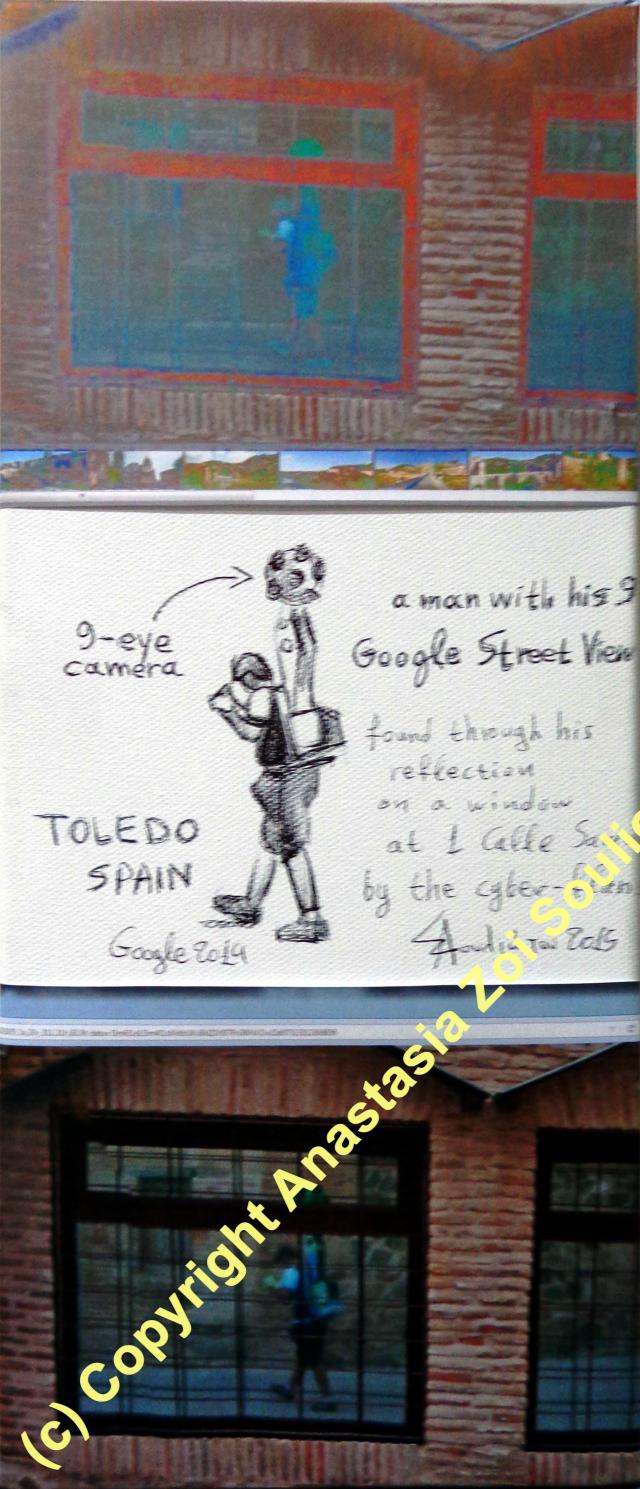 9-eye
camera
a man with his 9
Google Street View
found through his
reflection
on a window
at 1 Calle Sa
by the cyber-
TOLEDO
SPAIN
Google 2014
2015
(c) Copyright Anastasia Zoi Soulio